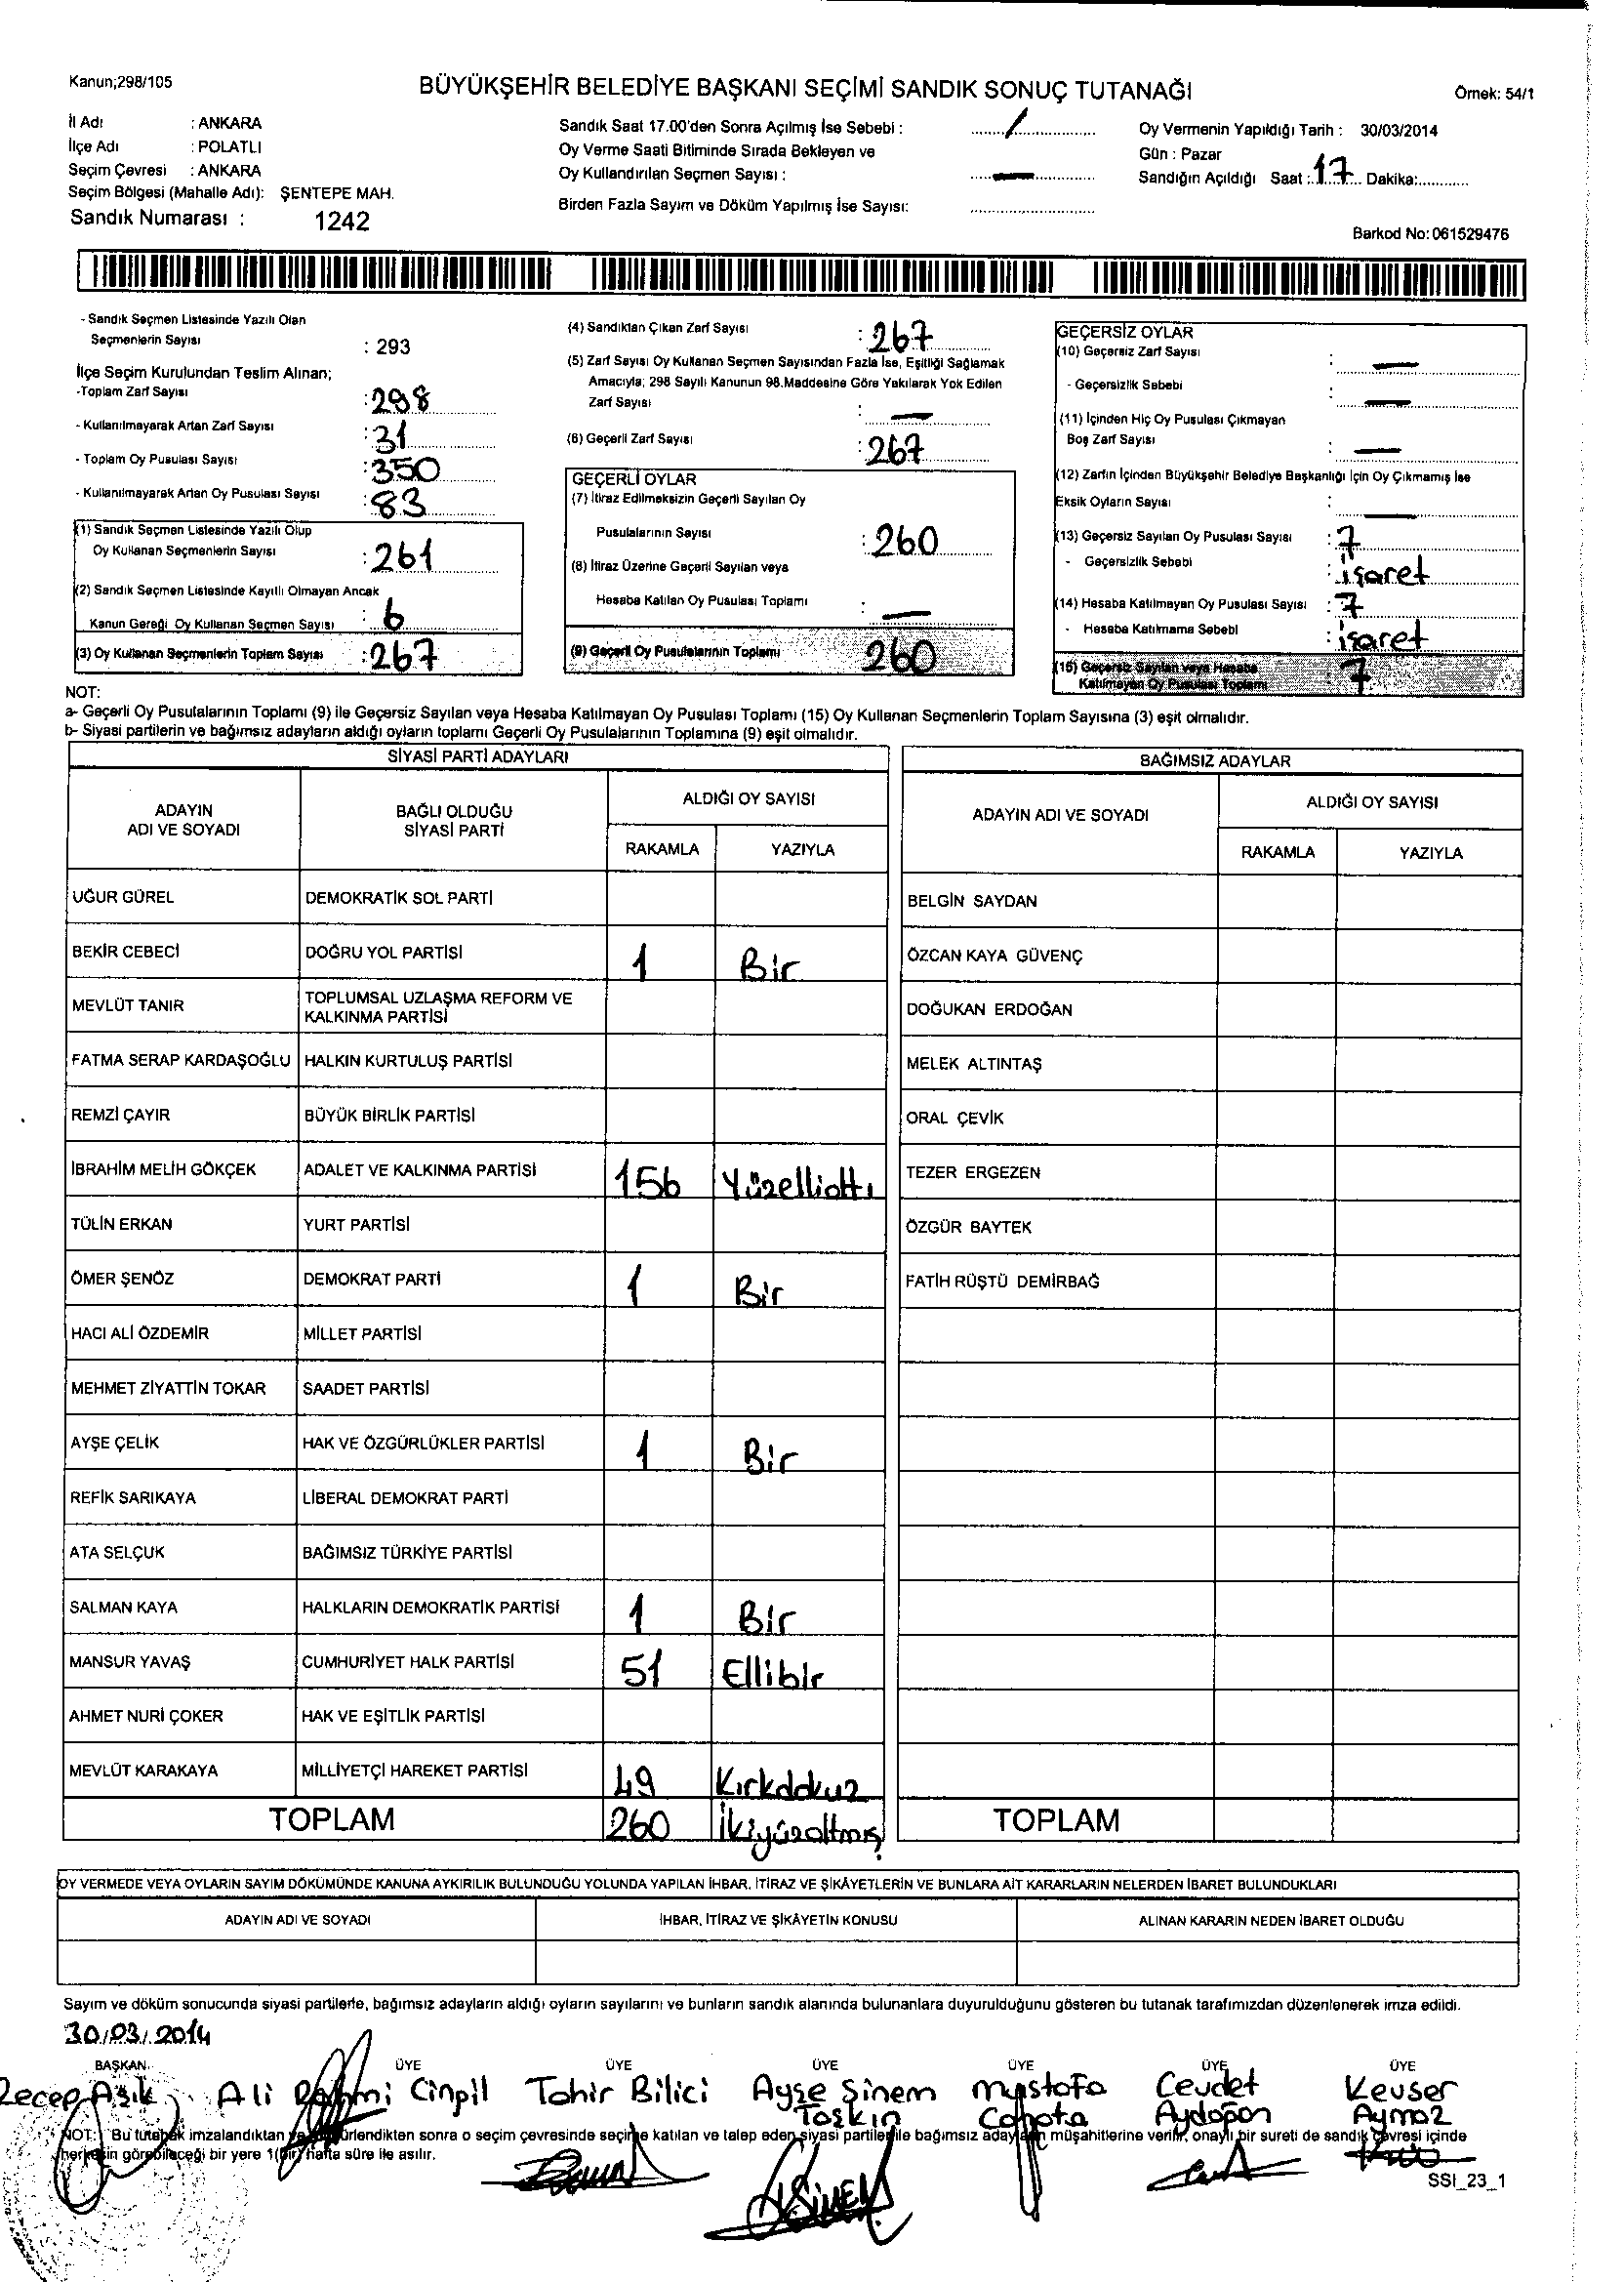 Kanun;298/105
BÜYÜKŞEHİR BELEDİYE BAŞKANI SEÇİMİ SANDIK SONUÇ TUTANAĞI
Örnek: 54/1
İl Adı : ANKARA
İlçe Adı : POLATLI
Seçim Çevresi : ANKARA
Seçim Bölgesi (Mahalle Adı): ŞENTEPE MAH.
Sandık Numarası : 1242
Sandık Saat 17.00'den Sonra Açılmış İse Sebebi : /
Oy Verme Saati Bitiminde Sırada Bekleyen ve
Oy Kullandırılan Seçmen Sayısı : —
Birden Fazla Sayım ve Döküm Yapılmış İse Sayısı:
Oy Vermenin Yapıldığı Tarih : 30/03/2014
Gün : Pazar
Sandığın Açıldığı Saat : 17 Dakika:
Barkod No: 061529476
- Sandık Seçmen Listesinde Yazılı Olan
Seçmenlerin Sayısı : 293
İlçe Seçim Kurulundan Teslim Alınan;
-Toplam Zarf Sayısı : 298
- Kullanılmayarak Artan Zarf Sayısı : 31
- Toplam Oy Pusulası Sayısı : 350
- Kullanılmayarak Artan Oy Pusulası Sayısı : 83
(1) Sandık Seçmen Listesinde Yazılı Olup
Oy Kullanan Seçmenlerin Sayısı : 261
(2) Sandık Seçmen Listesinde Kayıtlı Olmayan Ancak
Kanun Gereği Oy Kullanan Seçmen Sayısı : 6
(3) Oy Kullanan Seçmenlerin Toplam Sayısı : 267
(4) Sandıktan Çıkan Zarf Sayısı : 267
(5) Zarf Sayısı Oy Kullanan Seçmen Sayısından Fazla İse, Eşitliği Sağlamak
Amacıyla; 298 Sayılı Kanunun 98.Maddesine Göre Yakılarak Yok Edilen
Zarf Sayısı : —
(6) Geçerli Zarf Sayısı : 267
GEÇERLİ OYLAR
(7) İtiraz Edilmeksizin Geçerli Sayılan Oy
Pusulalarının Sayısı : 260
(8) İtiraz Üzerine Geçerli Sayılan veya
Hesaba Katılan Oy Pusulası Toplamı : —
(9) Geçerli Oy Pusulalarının Toplamı 260
GEÇERSİZ OYLAR
(10) Geçersiz Zarf Sayısı : —
- Geçersizlik Sebebi : —
(11) İçinden Hiç Oy Pusulası Çıkmayan
Boş Zarf Sayısı : —
(12) Zarfın İçinden Büyükşehir Belediye Başkanlığı İçin Oy Çıkmamış İse
Eksik Oyların Sayısı : —
(13) Geçersiz Sayılan Oy Pusulası Sayısı : 7
- Geçersizlik Sebebi : işaret
(14) Hesaba Katılmayan Oy Pusulası Sayısı : 7
- Hesaba Katılmama Sebebi : işaret
(15) Geçersiz Sayılan veya Hesaba
Katılmayan Oy Pusulası Toplamı 7
NOT:
a- Geçerli Oy Pusulalarının Toplamı (9) ile Geçersiz Sayılan veya Hesaba Katılmayan Oy Pusulası Toplamı (15) Oy Kullanan Seçmenlerin Toplam Sayısına (3) eşit olmalıdır.
b- Siyasi partilerin ve bağımsız adayların aldığı oyların toplamı Geçerli Oy Pusulalarının Toplamına (9) eşit olmalıdır.
SİYASİ PARTİ ADAYLARI
ADAYIN ADI VE SOYADI
BAĞLI OLDUĞU SİYASİ PARTİ
ALDIĞI OY SAYISI
RAKAMLA YAZIYLA
UĞUR GÜREL DEMOKRATİK SOL PARTİ
BEKİR CEBECİ DOĞRU YOL PARTİSİ 1 Bir
MEVLÜT TANIR TOPLUMSAL UZLAŞMA REFORM VE
KALKINMA PARTİSİ
FATMA SERAP KARDAŞOĞLU HALKIN KURTULUŞ PARTİSİ
REMZİ ÇAYIR BÜYÜK BİRLİK PARTİSİ
İBRAHİM MELİH GÖKÇEK ADALET VE KALKINMA PARTİSİ 156 Yüzellialtı
TÜLİN ERKAN YURT PARTİSİ
ÖMER ŞENÖZ DEMOKRAT PARTİ 1 Bir
HACI ALİ ÖZDEMİR MİLLET PARTİSİ
MEHMET ZİYATTİN TOKAR SAADET PARTİSİ
AYŞE ÇELİK HAK VE ÖZGÜRLÜKLER PARTİSİ 1 Bir
REFİK SARIKAYA LİBERAL DEMOKRAT PARTİ
ATA SELÇUK BAĞIMSIZ TÜRKİYE PARTİSİ
SALMAN KAYA HALKLARIN DEMOKRATİK PARTİSİ 1 Bir
MANSUR YAVAŞ CUMHURİYET HALK PARTİSİ 51 Ellibir
AHMET NURİ ÇOKER HAK VE EŞİTLİK PARTİSİ
MEVLÜT KARAKAYA MİLLİYETÇİ HAREKET PARTİSİ 49 Kırkdokuz
TOPLAM 260 İkiyüzaltmış
BAĞIMSIZ ADAYLAR
ADAYIN ADI VE SOYADI
ALDIĞI OY SAYISI
RAKAMLA YAZIYLA
BELGİN SAYDAN
ÖZCAN KAYA GÜVENÇ
DOĞUKAN ERDOĞAN
MELEK ALTINTAŞ
ORAL ÇEVİK
TEZER ERGEZEN
ÖZGÜR BAYTEK
FATİH RÜŞTÜ DEMİRBAĞ
TOPLAM
OY VERMEDE VEYA OYLARIN SAYIM DÖKÜMÜNDE KANUNA AYKIRILIK BULUNDUĞU YOLUNDA YAPILAN İHBAR, İTİRAZ VE ŞİKÂYETLERİN VE BUNLARA AİT KARARLARIN NELERDEN İBARET BULUNDUKLARI
ADAYIN ADI VE SOYADI İHBAR, İTİRAZ VE ŞİKÂYETİN KONUSU ALINAN KARARIN NEDEN İBARET OLDUĞU
Sayım ve döküm sonucunda siyasi partilerle, bağımsız adayların aldığı oyların sayılarını ve bunların sandık alanında bulunanlara duyurulduğunu gösteren bu tutanak tarafımızdan düzenlenerek imza edildi.
30/03/2014
BAŞKAN ÜYE ÜYE ÜYE ÜYE ÜYE ÜYE
Recep Aşık Ali Rahmi Cinpil Tahir Bilici Ayşe Sinem Mustafa Cevdet Kevser
Taşkın Aydoğan Aymaz
NOT: Bu tutanak imzalandıktan ve mühürlendikten sonra o seçim çevresinde seçime katılan ve talep eden siyasi partiler ile bağımsız adayların müşahitlerine verilir, onaylı bir sureti de sandık çevresi içinde
herkesin görebileceği bir yere 1(bir) hafta süre ile asılır.
SSI_23_1